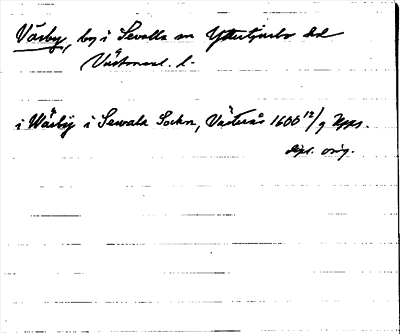 Vårby, by i Sevalla sn Yttertjurbo hd
Västmanl. l.
i Wårbÿ i Sewala Sockn, Västerås 1600 12/9 Upps.
dipl. orig.